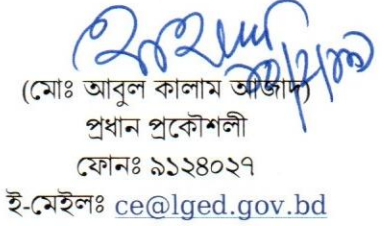 (মোঃ আবুল কালাম আজাদ)
প্রধান প্রকৌশলী
ফোনঃ ৯১২৪০২৭
ই-মেইলঃ ce@lged.gov.bd